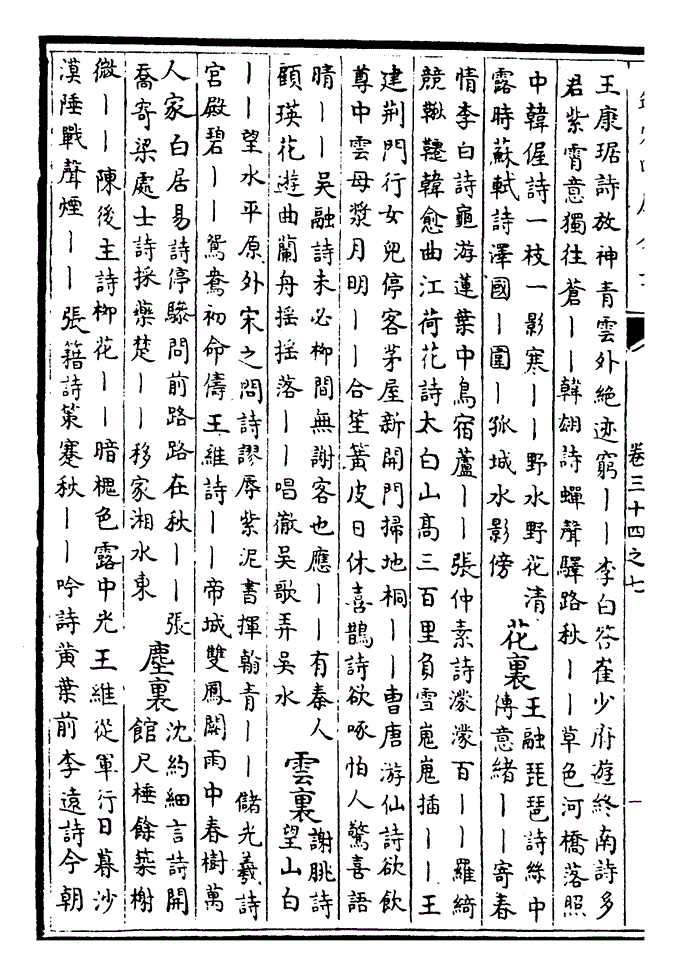 卷三十四之七
一
王康琚詩放神青雲外絶迹窮丨丨李白答崔少府遊終南詩多
君紫霄意獨往蒼丨丨韓翃詩蟬聲驛路秋丨丨草色河橋落照
中韓偓詩一枝一影寒丨丨野水野花清
露時蘇軾詩澤國丨圍丨孤城水影傍
花裏
王融琵琶詩絲中
傳意緒丨丨寄春
情李白詩龜游蓮葉中鳥宿蘆丨丨張仲素詩濛濛百丨丨羅綺
競鞦韆韓愈曲江荷花詩太白山高三百里負雪嵬嵬插丨丨王
建荆門行女兒停客茅屋新開門掃地桐丨丨曹唐游仙詩欲飲
尊中雲母漿月明丨丨合笙簧皮日休喜鵲詩欲啄怕人驚喜語
晴丨丨吳融詩未必柳間無謝客也應丨丨有秦人
顧瑛花遊曲蘭舟摇摇落丨丨唱徹吳歌弄吳水
雲裏
謝朓詩
望山白
丨丨望水平原外宋之問詩謬辱紫泥書揮翰青丨丨儲光羲詩
宮殿碧丨丨鴛鴦初命儔王維詩丨丨帝城雙鳳闕雨中春樹萬
人家白居易詩停驂問前路路在秋丨丨張
喬寄梁處士詩採藥楚丨丨移家湘水東
塵裏
沈約細言詩開
館尺棰餘築榭
微丨丨陳後主詩柳花丨丨暗槐色露中光王維從軍行日暮沙
漠陲戰聲煙丨丨張籍詩策蹇秋丨丨吟詩黄葉前李遠詩今朝